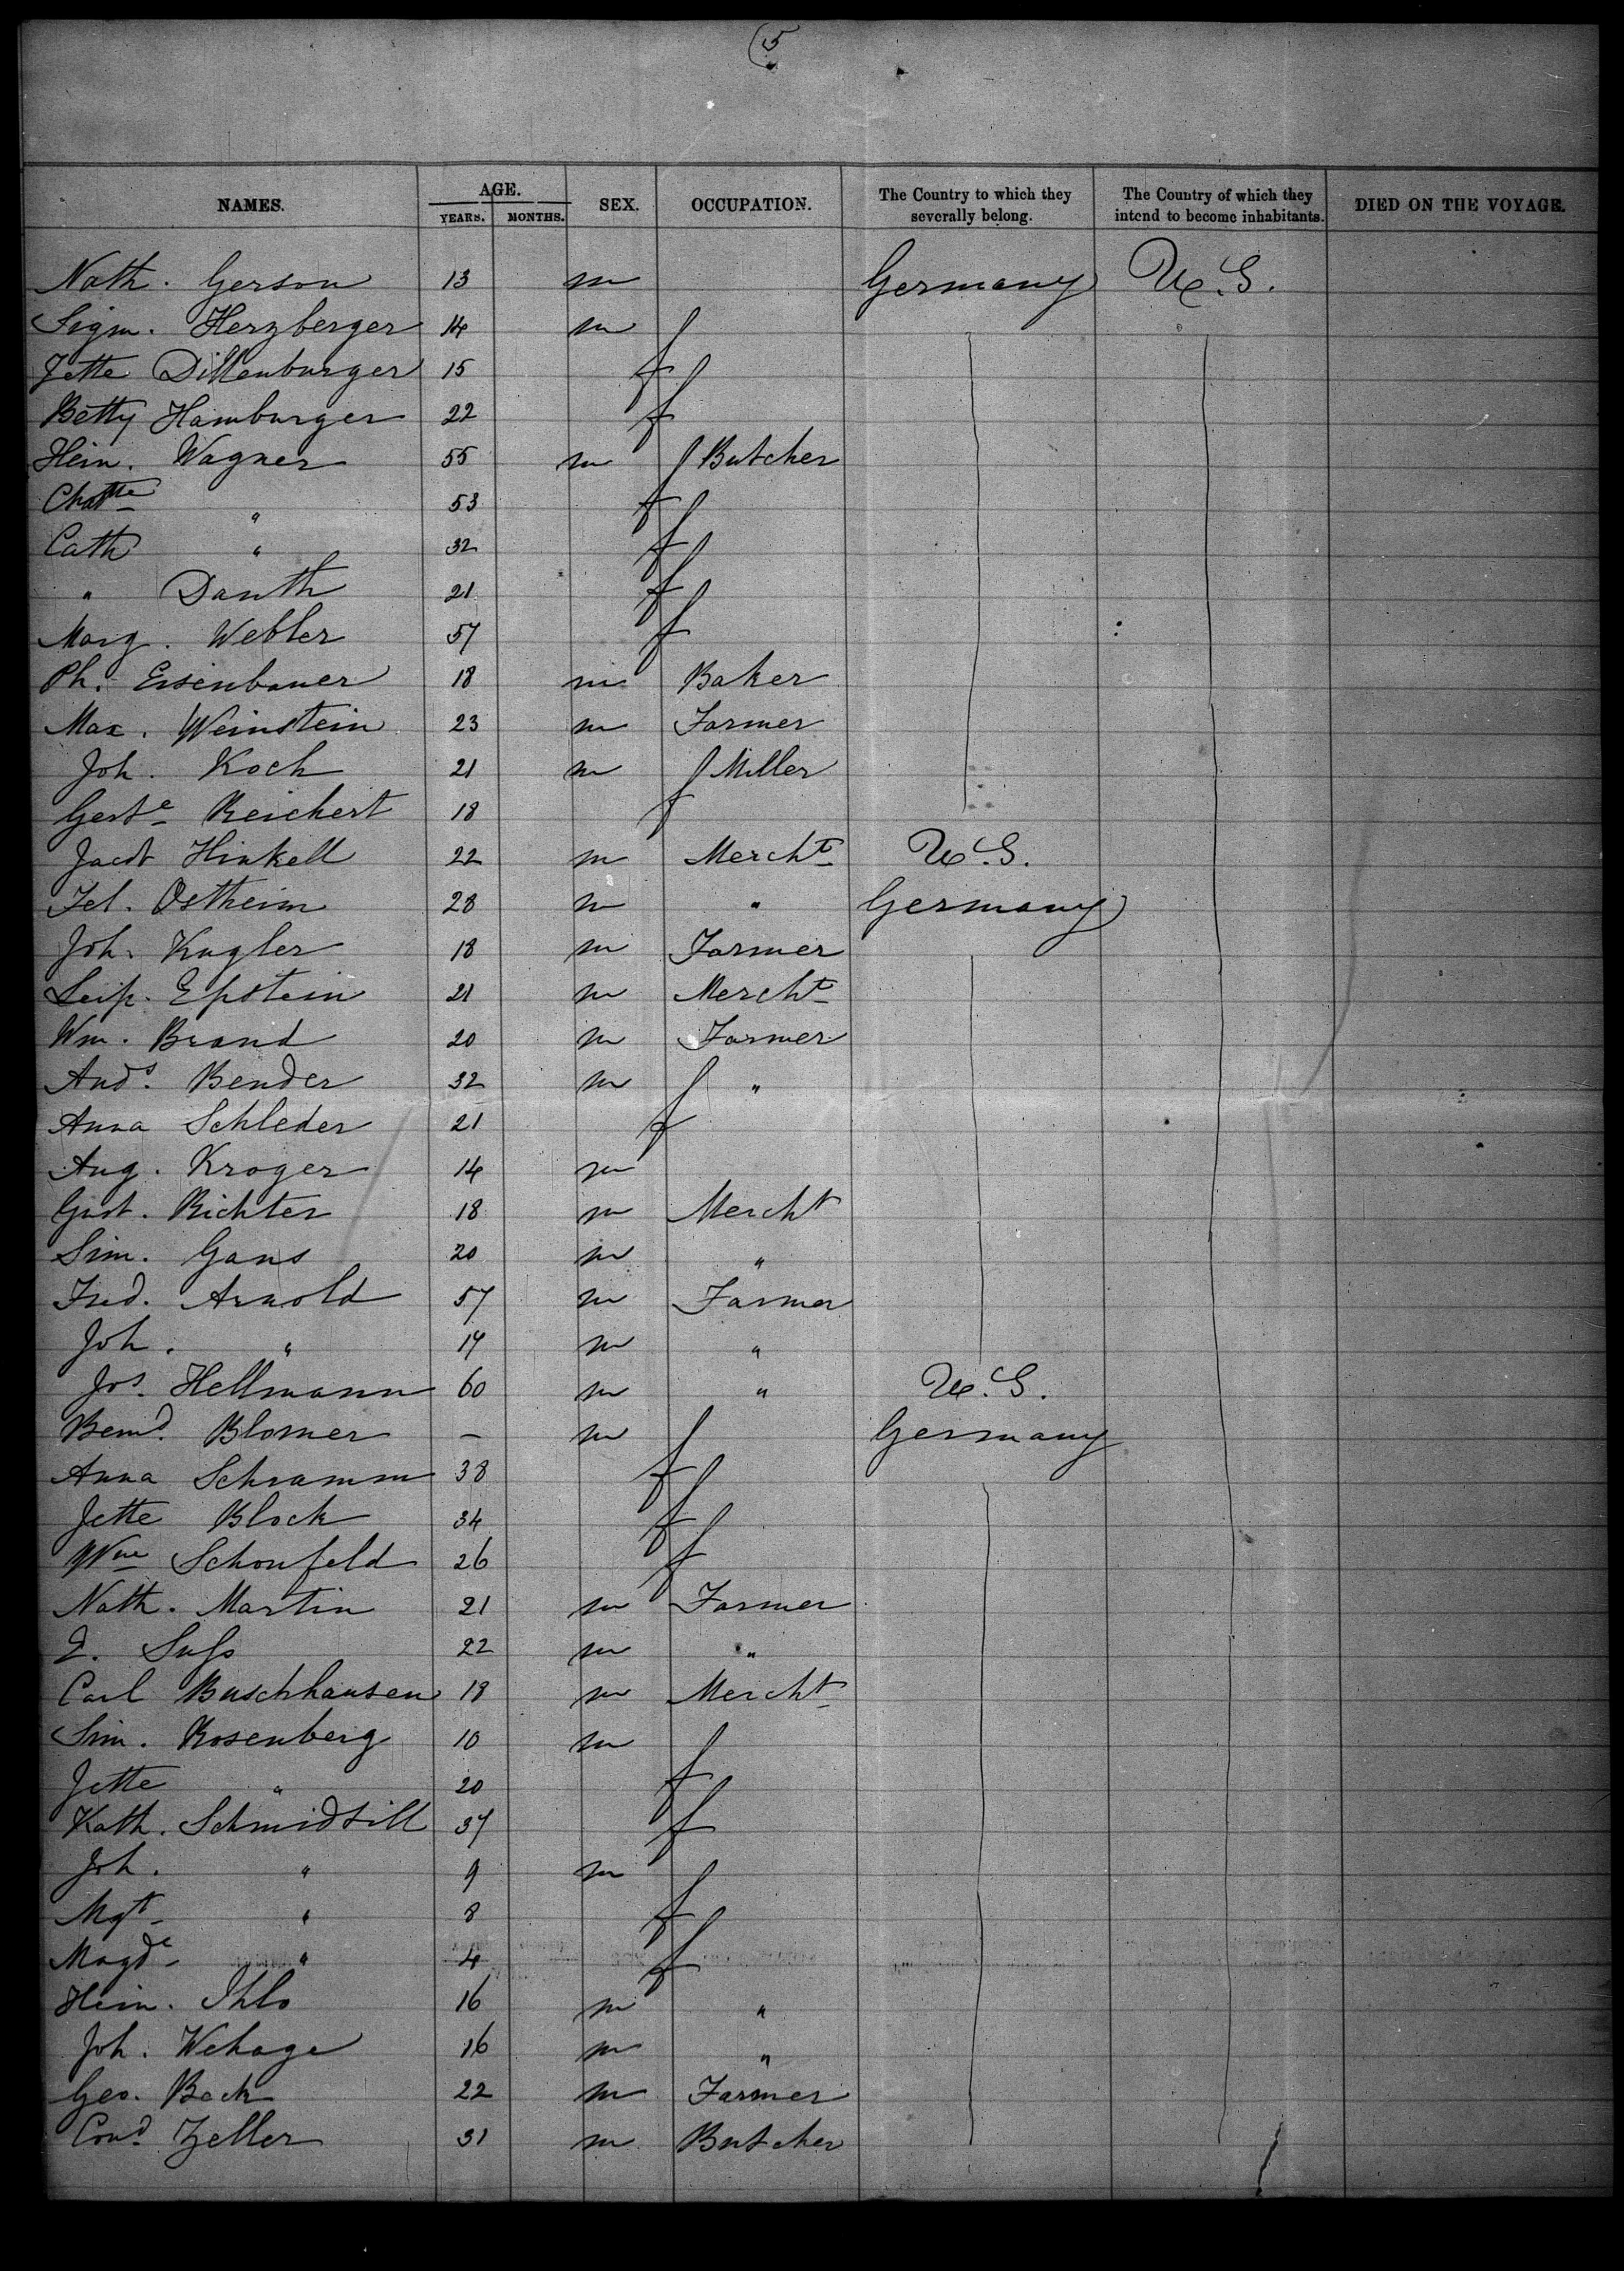 (5
NAMES. AGE. YEARS. MONTHS. SEX. OCCUPATION. The Country to which they severally belong. The Country of which they intend to become inhabitants. DIED ON THE VOYAGE.
Nath. Gerson 13 m Germany U.S.
Sigm. Herzberger 14 m
Jette Dillenburger 15 f
Betty Hamburger 22 f
Hein. Wagner 55 m Butcher
Chatte " 53 f
Cath " 32 f
" Danth 21 f
Marg. Webler 57 f
Ph. Eisenbauer 18 m Baker
Max. Weinstein 23 m Farmer
Joh. Koch 21 m Miller
Gerte Reichert 18 f
Jacob Hinkell 22 m Mercht U.S.
Fel. Ostheim 28 m " Germany
Joh. Kugler 18 m Farmer
Leip. Epstein 21 m Mercht
Wm. Brand 20 m Farmer
Ands. Bender 32 m "
Anna Schleder 21 f
Aug. Kroger 14 m
Gust. Richter 18 m Mercht
Sim. Gans 20 m "
Fred. Arnold 57 m Farmer
Joh. " 17 m "
Jos. Hellmann 60 m " U.S.
Bernd. Blomer – m Germany
Anna Schramm 38 f
Jette Block 34 f
Wne Schonfeld 26 f
Nath. Martin 21 m Farmer
Suss 22 m "
Carl Buschhausen 18 m Mercht
Sim. Rosenberg 10 m
Jette " 20 f
Kath. Schmidtill 37 f
Joh. " 9 m
Mgt " 8 f
Magde " 4 f
Hein. Ihlo 16 m "
Joh. Wehage 16 m "
Geo. Bock 22 m Farmer
Cond. Zeller 31 m Butcher